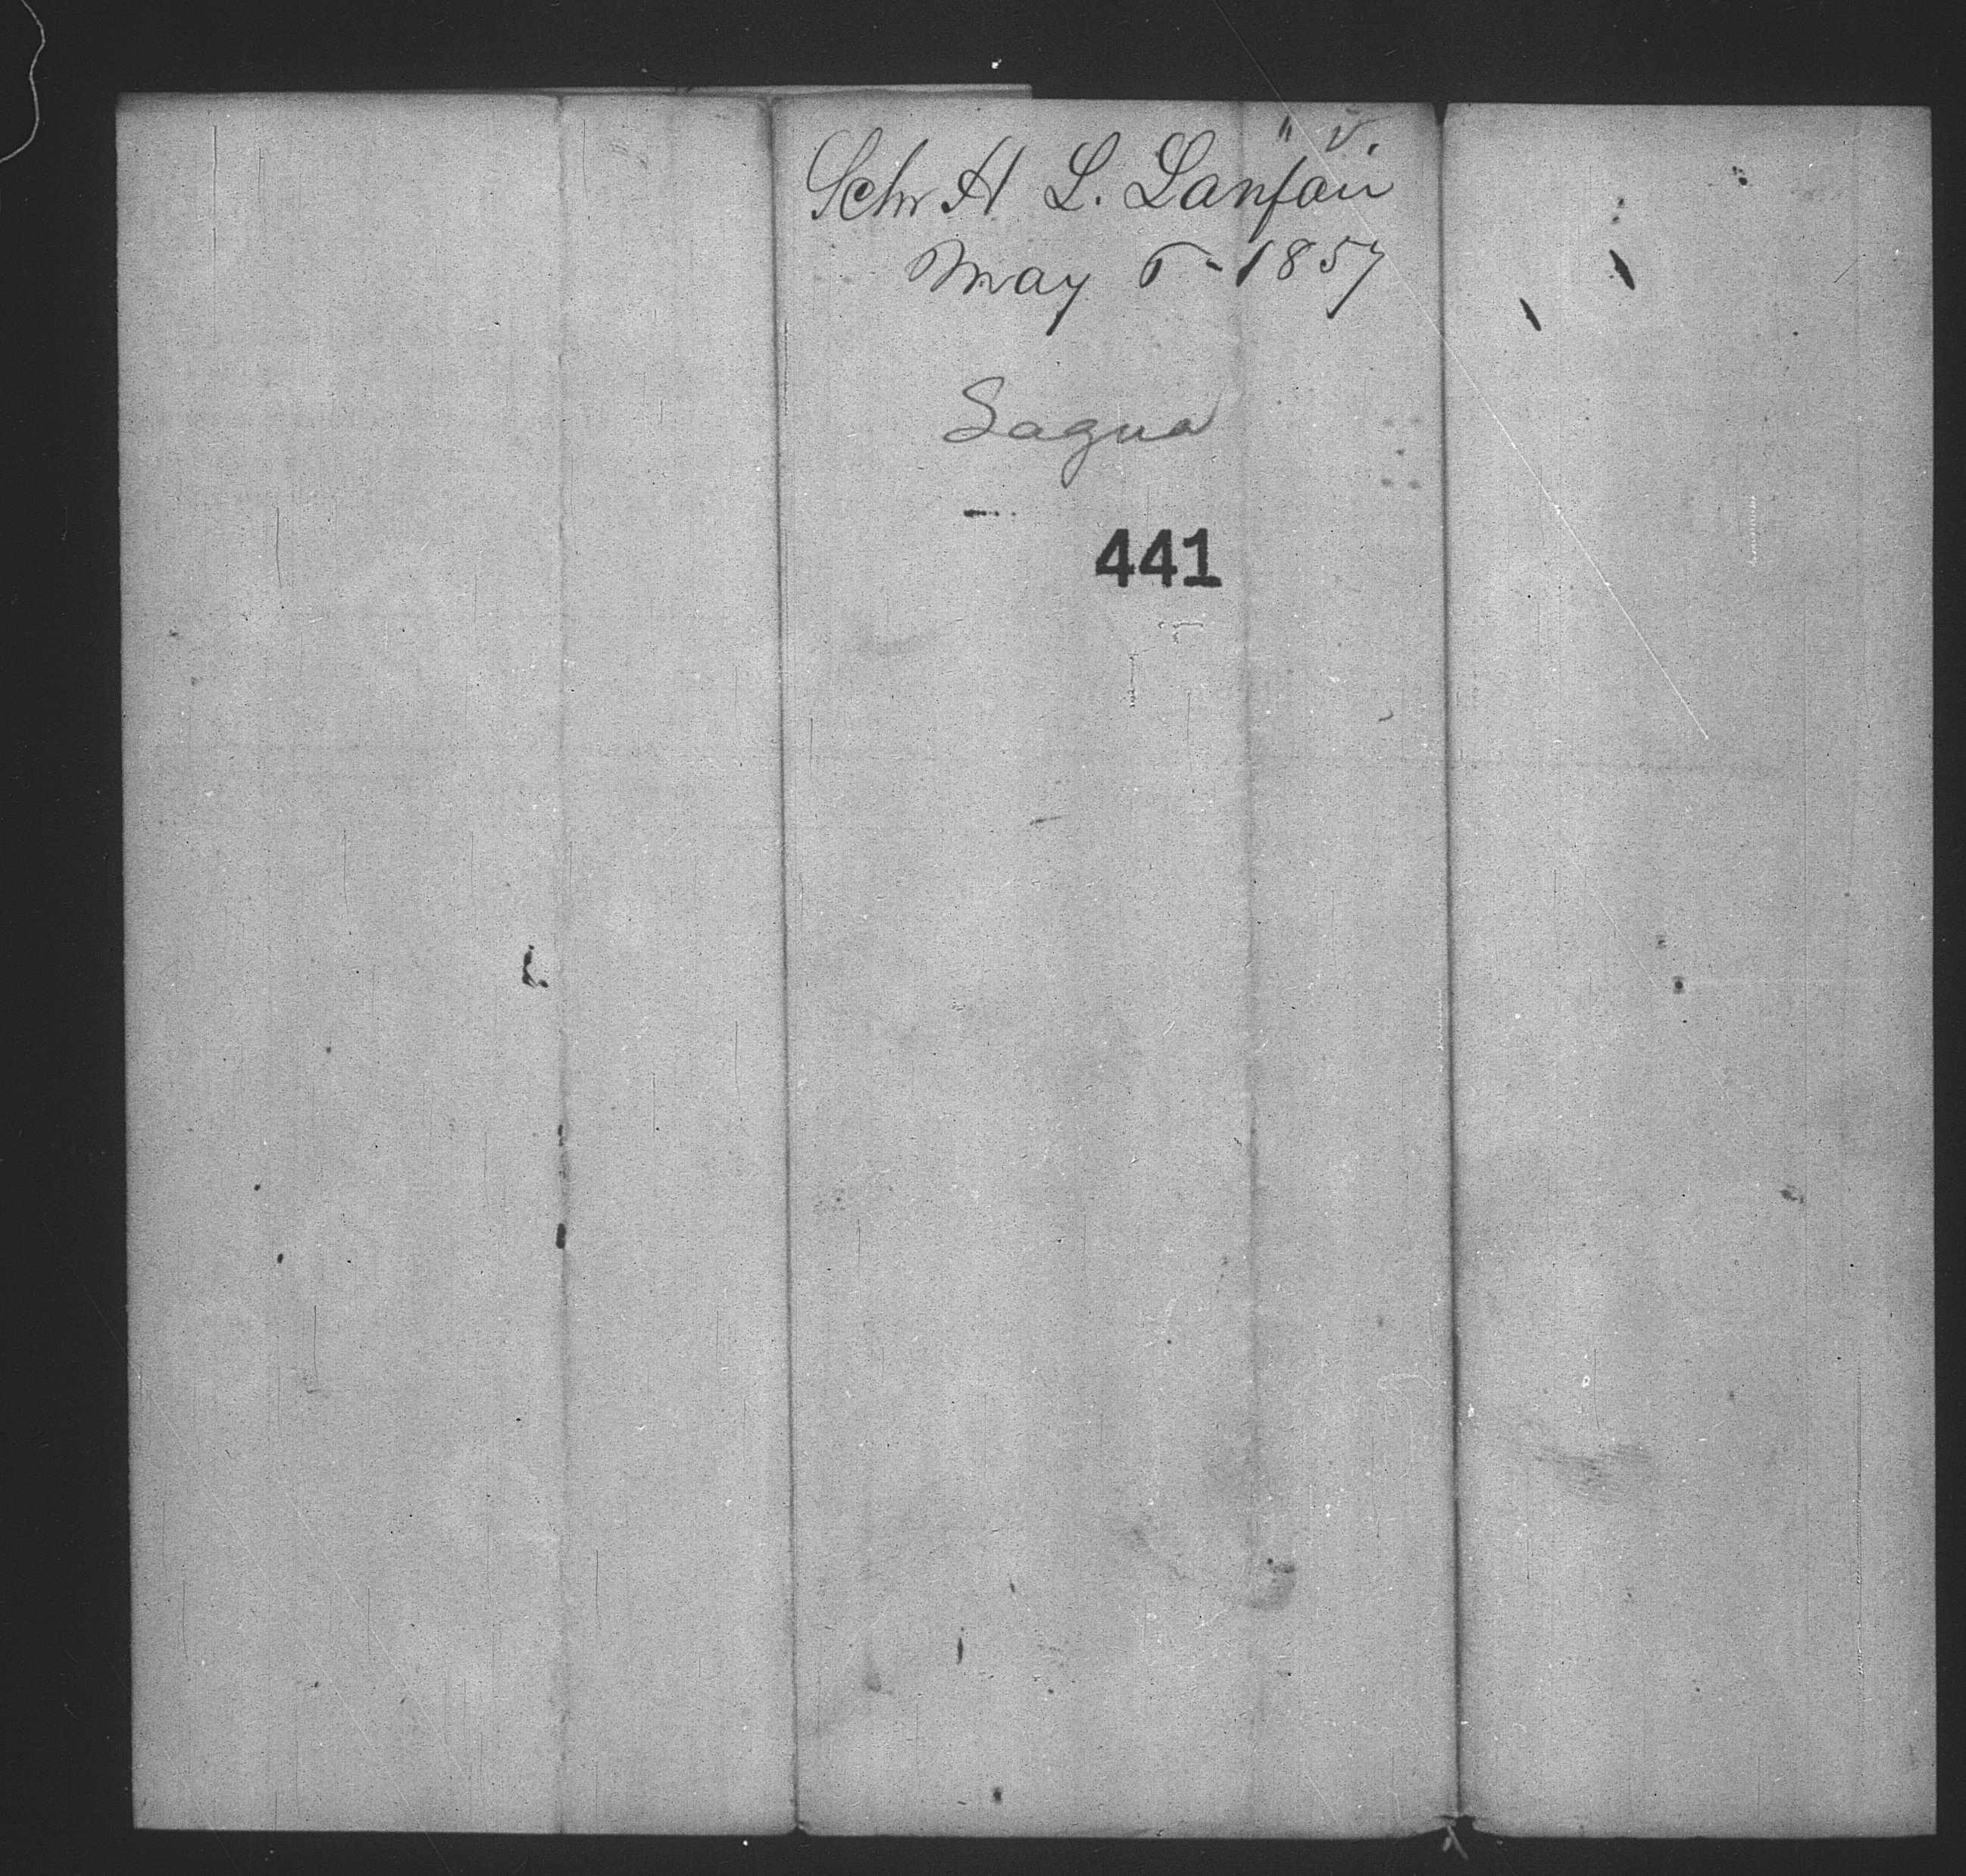 " v.
Schr H L. Lanfair
May 6 - 1857
Sagua
441